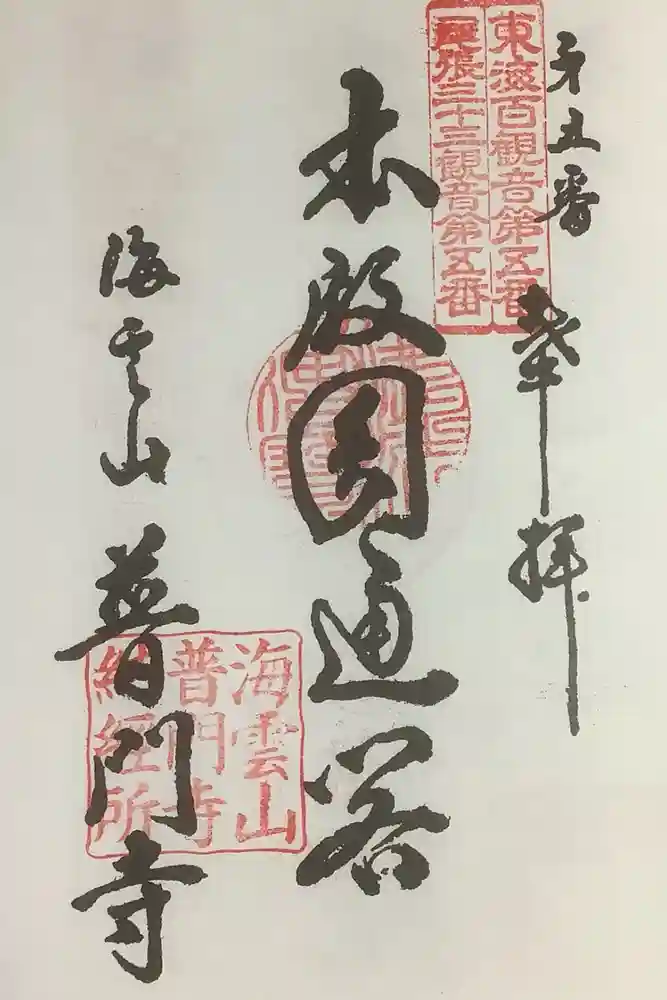 第五番
奉拝
東海百観音第五番
尾張三十三観音第五番
本殿圓通閣
海雲山
普門寺
海雲山
普門寺
納経所